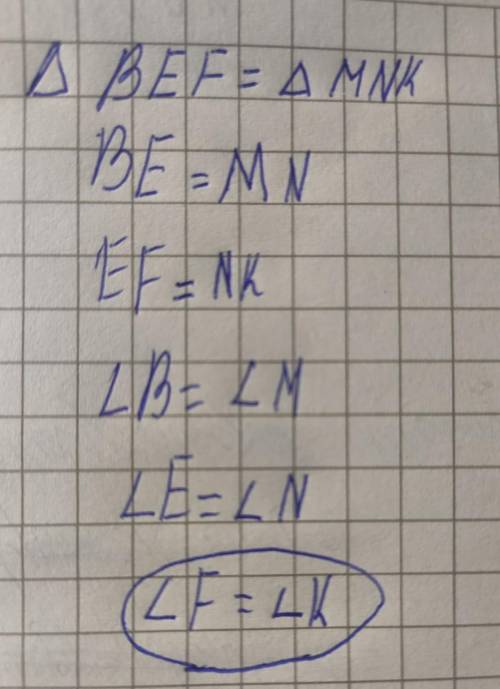 Δ BEF = Δ MNK
BE = MN
EF = NK
∠B = ∠M
∠E = ∠N
∠F = ∠K